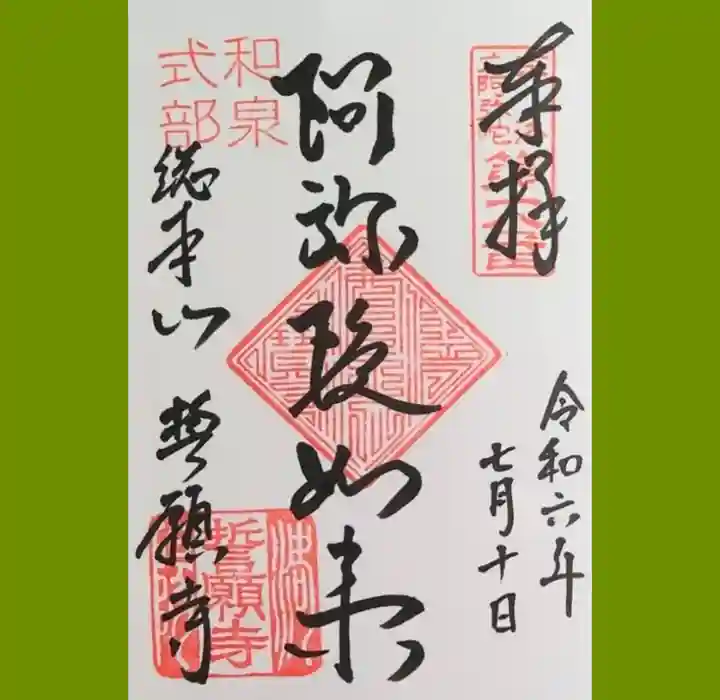 奉拝
令和六年
七月十日
阿弥陀如来
和泉
式部
総本山 誓願寺
誓願寺